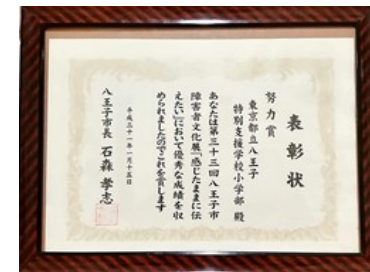 表彰状
努力賞
東京都立八王子
特別支援学校小学部 殿
あなたは第三十三回八王子市
障害者文化展『感じたままに伝
えたい』において優秀な成績を収
められましたのでこれを賞します
平成三十一年一月十五日
八王子市長 石森孝志